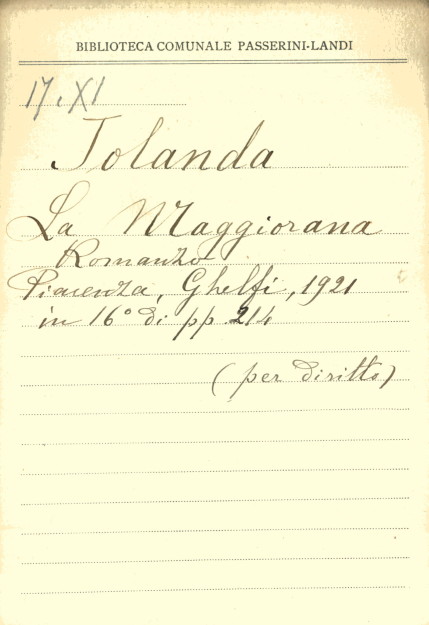 BIBLIOTECA COMUNALE PASSERINI-LANDI
17.XI
Jolanda
La Maggiorana
Romanzo
Piacenza, Ghelfi, 1921
in 16° di pp 214
(per diritto)